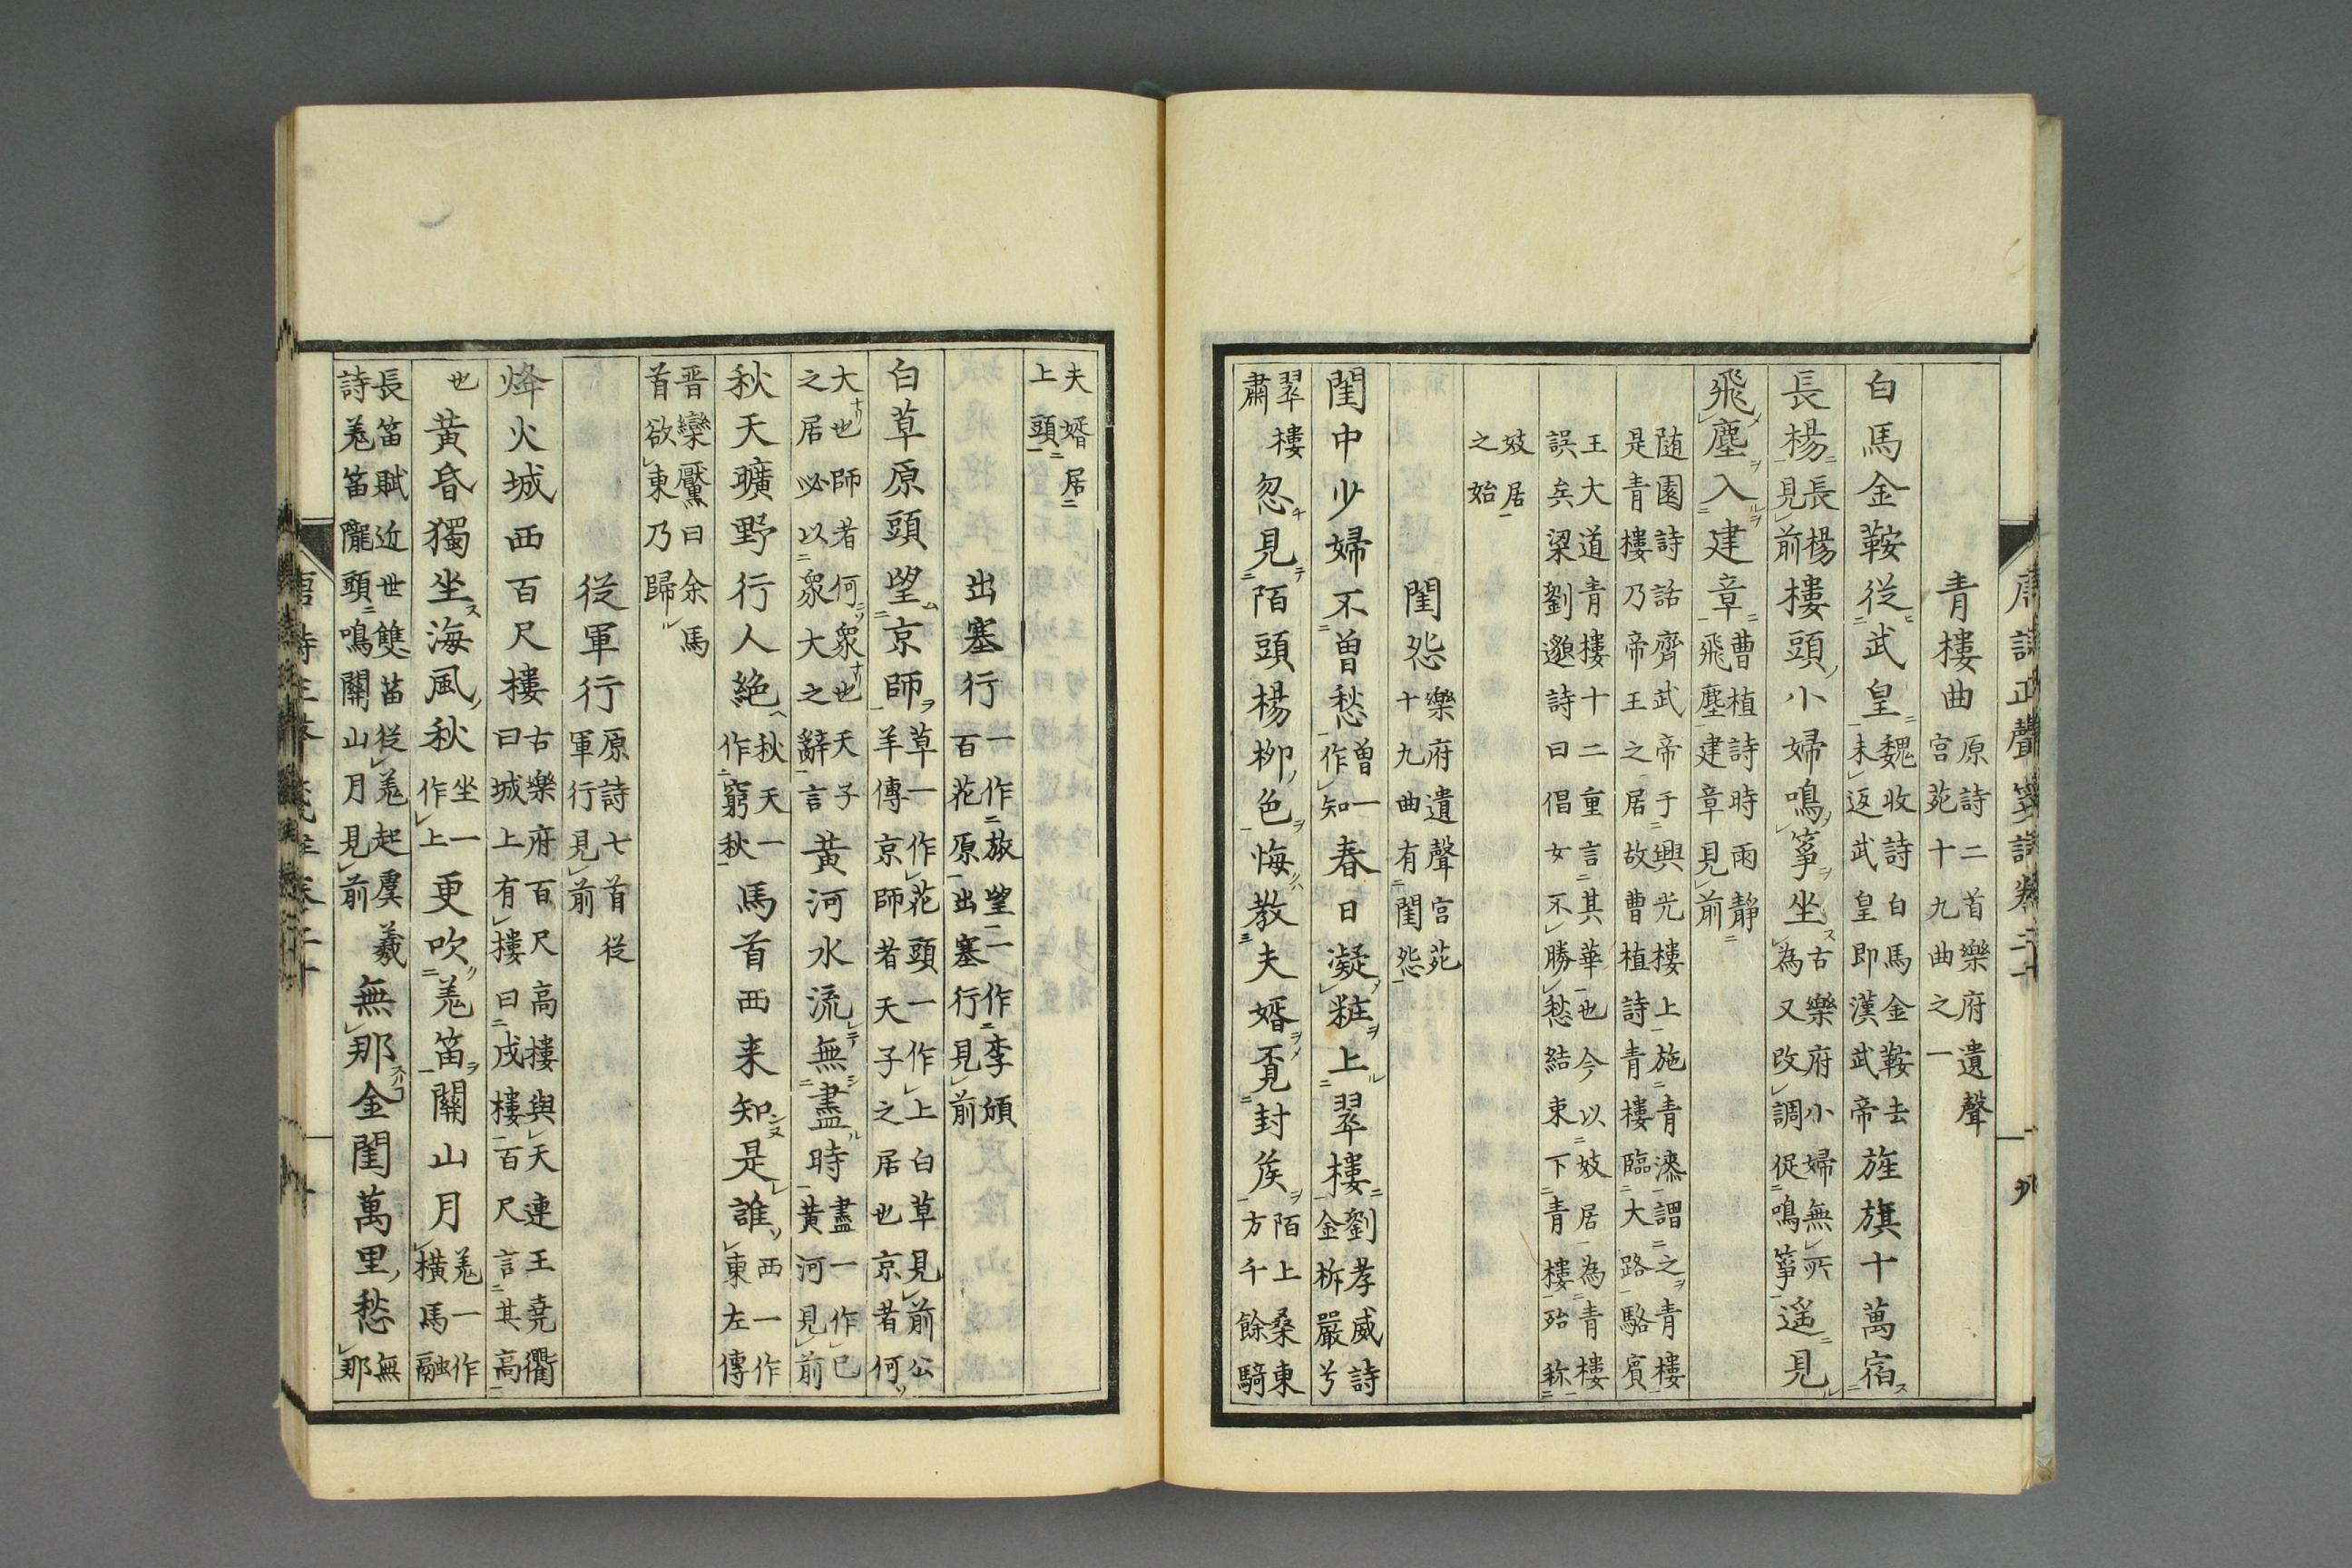 唐詩正聲箋註卷二十 九
青樓曲 原詩二首樂府遺聲宮苑十九曲之一
白馬金鞍從武皇 魏收詩白馬金鞍去未返武皇即漢武帝 旌旗十萬宿
長楊 長楊見前 樓頭小婦鳴箏坐 古樂府小婦無所為又改調促鳴箏 遥見
飛塵入建章 曹植詩時雨靜飛塵建章見前
随園詩話齊武帝于興光樓上施青漆謂之青樓
是青樓乃帝王之居故曹植詩青樓臨大路駱賓
王大道青樓十二重言其華也今以妓居為青樓
誤矣梁劉邈詩曰倡女不勝愁結束下青樓殆称
妓居
之始
閨怨 樂府遺聲宮苑十九曲有閨怨
閨中少婦不曾愁 曾一作知 春日凝粧上翠樓 劉孝威詩金柝嚴兮
翠樓肅 忽見陌頭楊柳色悔教夫婿覓封侯 陌上桑東方千餘騎
夫婿居上頭
出塞行 一作旅望一作李頎百花原出塞行見前
白草原頭望京師 草一作花頭一作上白草見前公羊傳京師者天子之居也京者何
大也師者何衆也天子之居必以衆大之辭言 黃河水流無盡時 盡一作已黄河見前
秋天曠野行人絶 秋天一作窮秋 馬首西来知是誰 西一作東左傳
晋欒黶曰余馬首欲東乃歸
從軍行 原詩七首從軍行見前
烽火城西百尺樓 古樂府百尺高樓與天連王尭衢曰城上有樓曰戍樓百尺言其高
也 黃昏獨坐海風秋 坐一作上 更吹羗笛關山月 羗一作横馬融
長笛賦近世雙笛從羗起虞羲詩羗笛隴頭鳴關山月見前 無那金閨萬里愁 無那